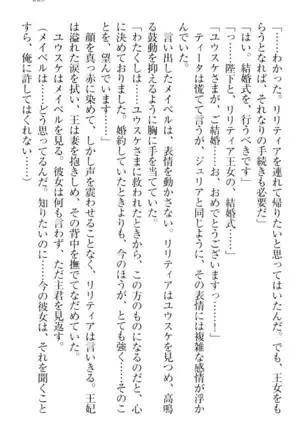 「……わかった。リリティアを連れて帰りたいと思ってはいたんだ。でも、王女をも
らうとなれば、それなりの手続きも必要だ」
「はい。結婚式を、行うべきです」
「っ……陛下と、リリティア王女の、結婚式……」
「ユウスケさまが、ご結婚……お、おめでとうございますっ……」
ティータは慌てて言うが、ジュリアと同じように、その表情には複雑な感情が浮か
んでいた。
言い出したメイベルは、表情を動かさない。リリティアはユウスケを見つめ、高鳴
る鼓動を抑えるように胸に手を当てていた。
「わたくしは……ユウスケさまに救われたときから、この方のものになるのだと、心
に決めておりました。婚約していたときよりも、今のほうが、とても強く……そのこ
とを、望んでいます……」
顔を真っ赤に染めて、しかし声を震わせることなく、リリティアは言いきる。王妃
は溢れた涙を拭い、王は妻を抱きしめ、その背中を撫でてなだめていた。
ユウスケはメイベルを見る。彼女は何も言わず、ただ主君を見返す。
（メイベルは……どう思ってるんだ。知りたいのに……今の彼女は、それを聞くこと
すら、俺に許してはくれない……）